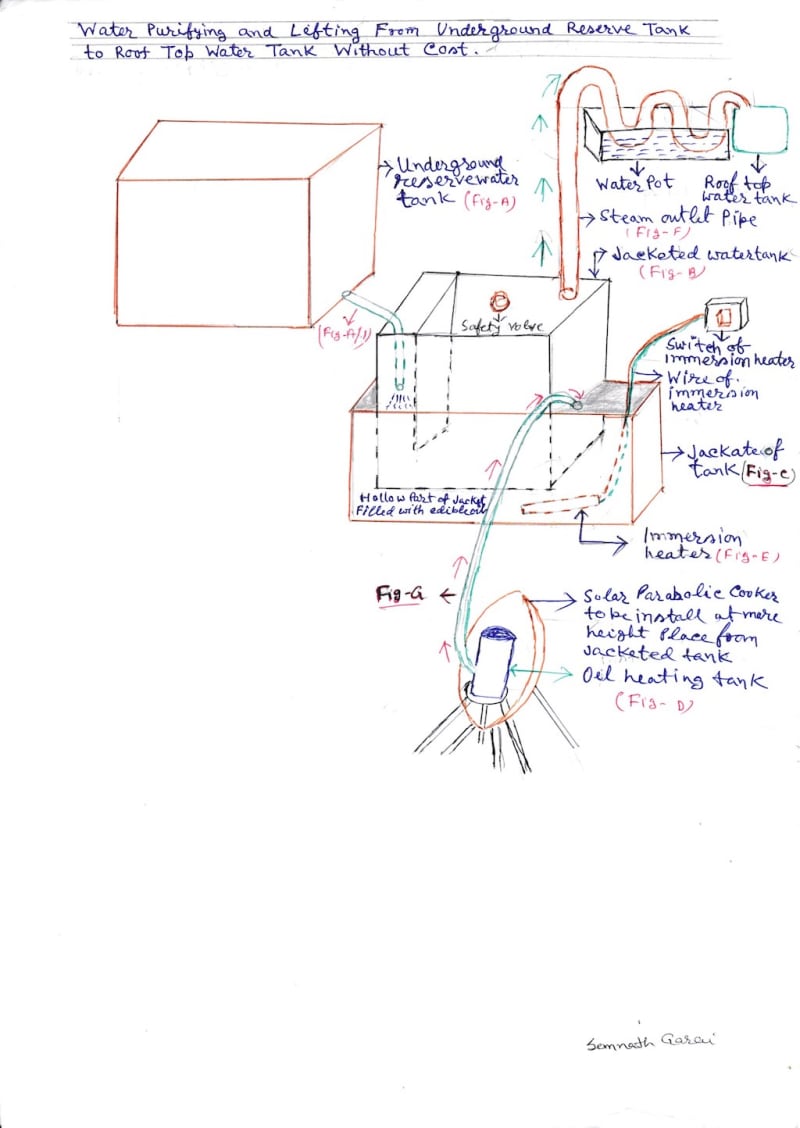 Water Purifying and Lifting From Underground Reserve Tank
to Roof Top Water Tank Without Cost.
Underground
reservewater
tank (Fig-A)
Water Pot
Roof top
water tank
Steam outlet Pipe
(Fig-F)
Jacketed watertank
(Fig-B)
Safety valve
(Fig-A/1)
Switch of
immersion heater
Wire of
immersion
heater
Jackate of
tank (Fig-C)
Hollow Part of Jacket
Filled with edibleoil
Immersion
heater (Fig-E)
Fig-G
Solar Parabolic Cooker
to be install at mere
height Place from
Jacketed tank
Oil heating tank
(Fig-D)
Somnath Garai